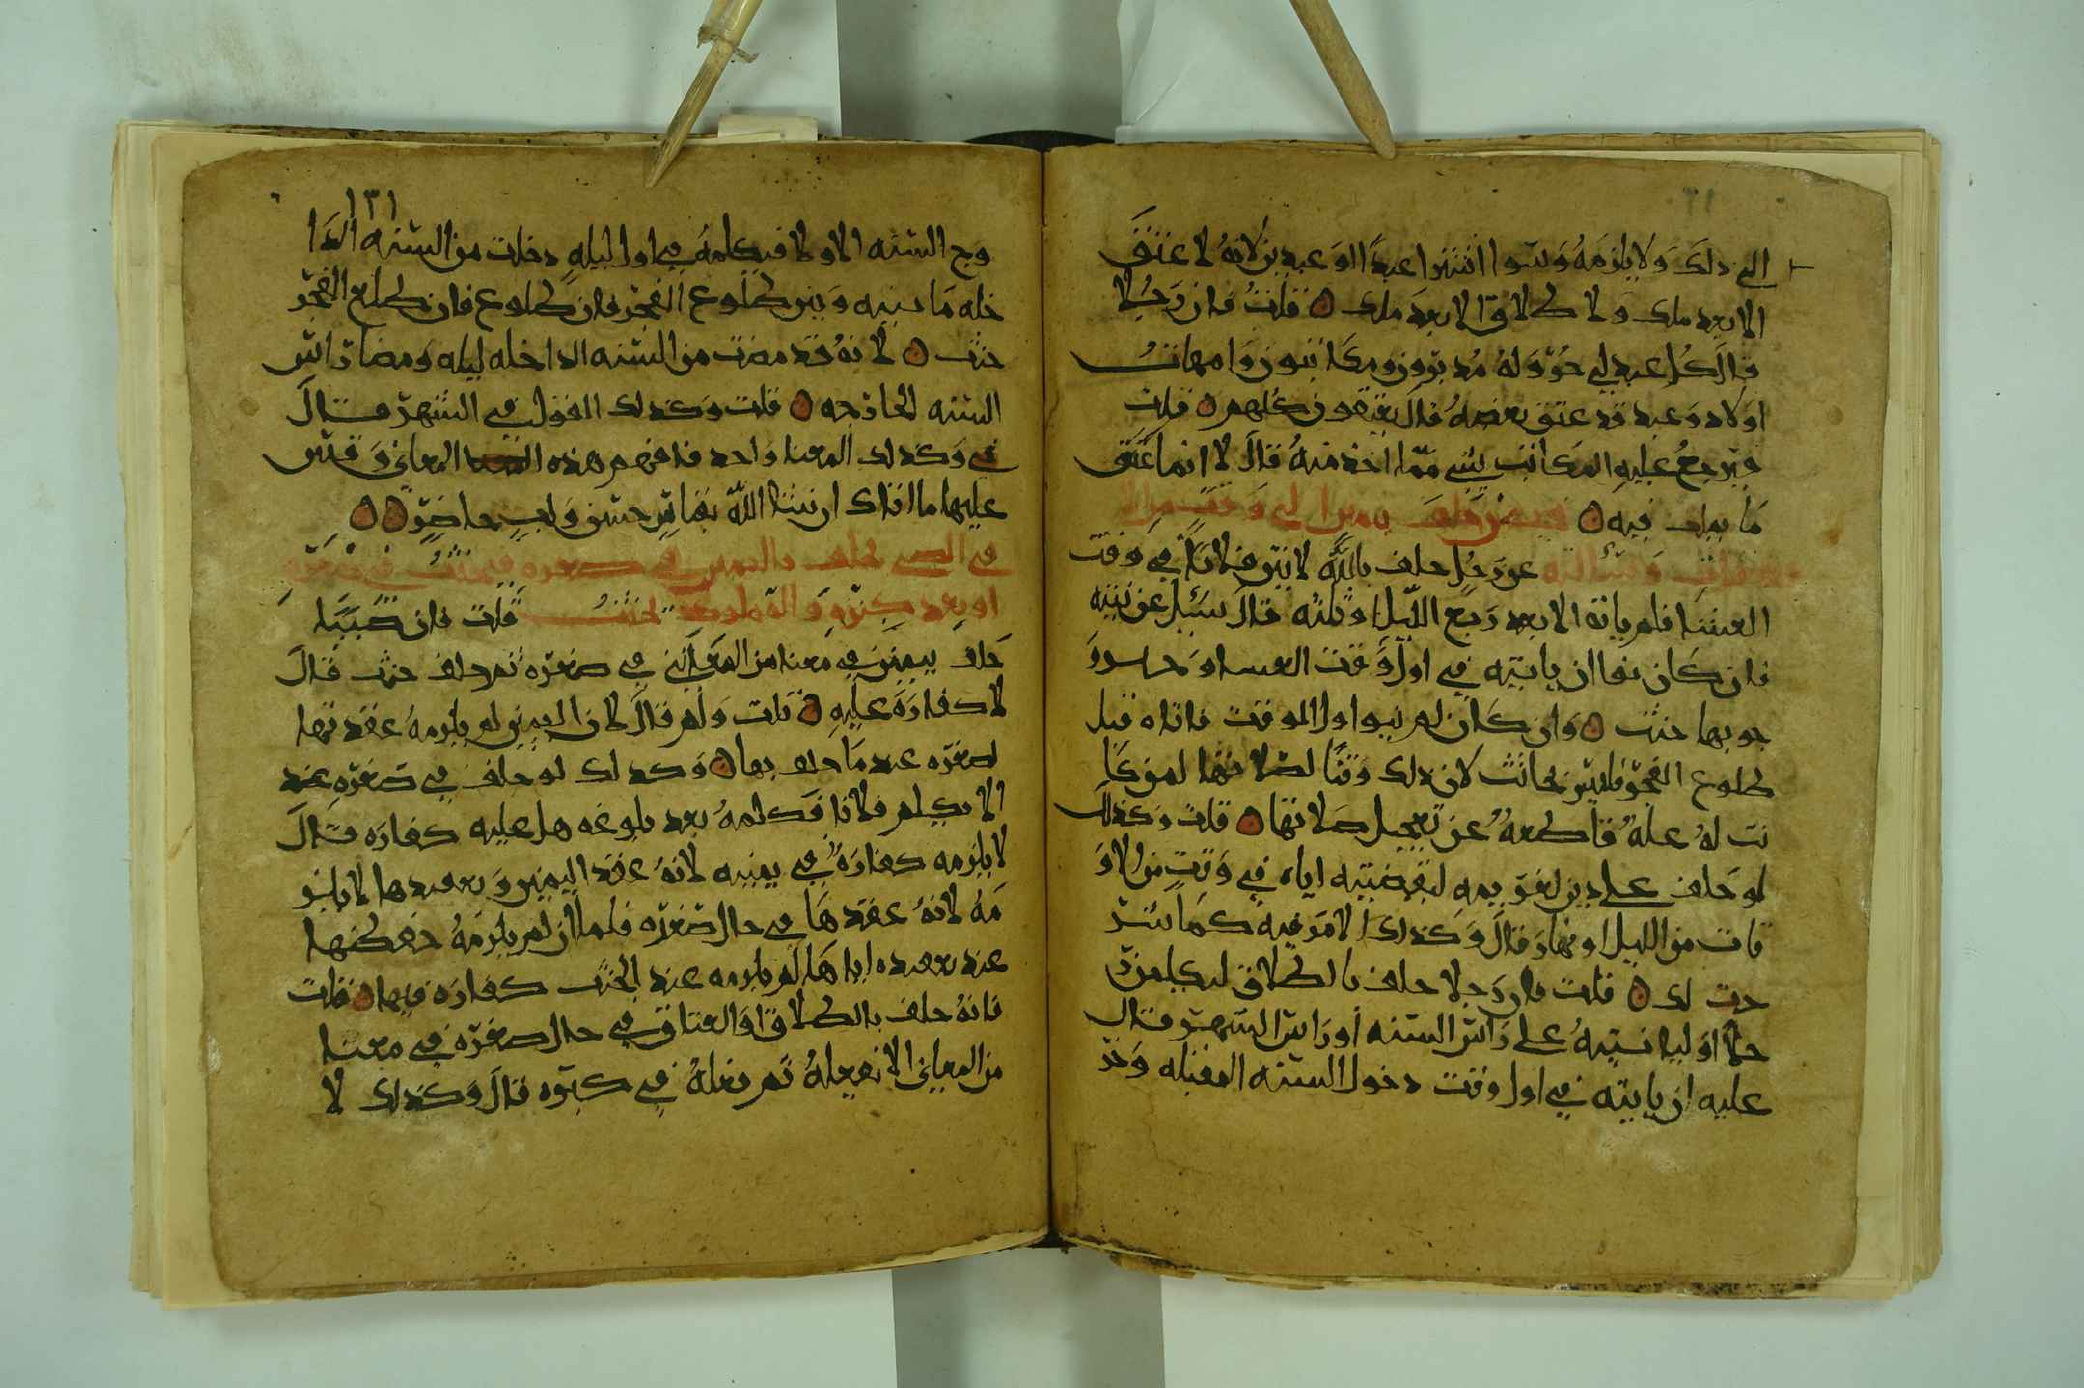 الى ذلك ولا يلزمه وسوا اشترا عبدا او عبدين لانه لا عتق
الا بعد ملك ولا طلاق الا بعد ملك قلت فان رجلا
قال كل عبد لي حر وله مدبرون ومكاتبون وامهات
اولاد وعبد قد عتق بعضه قال يعتقون كلهم قلت
ويرجع عليه المكاتب بشي مما اخذ منه قال لا انما عتق
ما يملك فيه فيمن حلف
وسالته عن رجل حلف بالله لاتين فلانا في وقت
العشا فلم ياته الا بعد ربع الليل او ثلثه قال سئل عن نيته
فان كان نوا ان ياتيه في اول وقت العشا و
جوبها حنث وان كان لم ينو اول الوقت فاتاه قبل
طلوع الفجر فليس بحانث لان ذلك وقتا لصلاتها لمن كا
نت له علة قاطعة عن تعجيل صلاتها قلت وكذلك
لو حلف على دين لغريمه ليقضينه اياه في وقت من الاو
قات من الليل او نهار قال وكذلك الامر فيه كما شر
حت لك قلت فان رجلا حلف بالطلاق ليكلمن ر
جلا او لياتينه على راس السنه او راس الشهر قال
عليه ان ياتيه في اول وقت دخول السنه المقبله وخر
١٣١
وج السنه الاولا فيكلمه في اول ليله دخلت من السنه الدا
خله ما بينه وبين طلوع الفجر فان طلوع فان طلع الفجر
حنث لانه قد مضت من السنه الداخله ليله ومضا راس
السنه الخارجه قلت وكذلك القول في الشهر قال
في وكذلك المعنا واحد فافهم هذه المعاني وقس
عليها ما اتاك ان شا الله بقياس حسن ولب حاضر
في الصبي يحلف باليمين في صغره فيحنث في صغره
او بعد كبره والمملوك يحنث قلت فان صبيا
حلف بيمين في معنا من المعاني في صغره ثم حلف حنث قال
لا كفارة عليه قلت ولم قال لان اليمين لم يلزمه عقدتها
لصغره عند ما حلف بها وكذلك لو حلف في صغره عند
الا يكلم فلانا فكلمه بعد بلوغه هل عليه كفاره قال
لا يلزمه كفارة في يمينه لانه عقد اليمين وتعقيدها لا يلز
مه لانه عقدها في حال صغره فلما ان لم يلزمه حفظها
عند تعقيده اياها لم يلزمه عند الحنث كفاره فيها قلت
فانه حلف بالطلاق او العتاق في حال صغره في معنا
من المعاني الا يفعله ثم فعله في كبره قال وكذلك لا